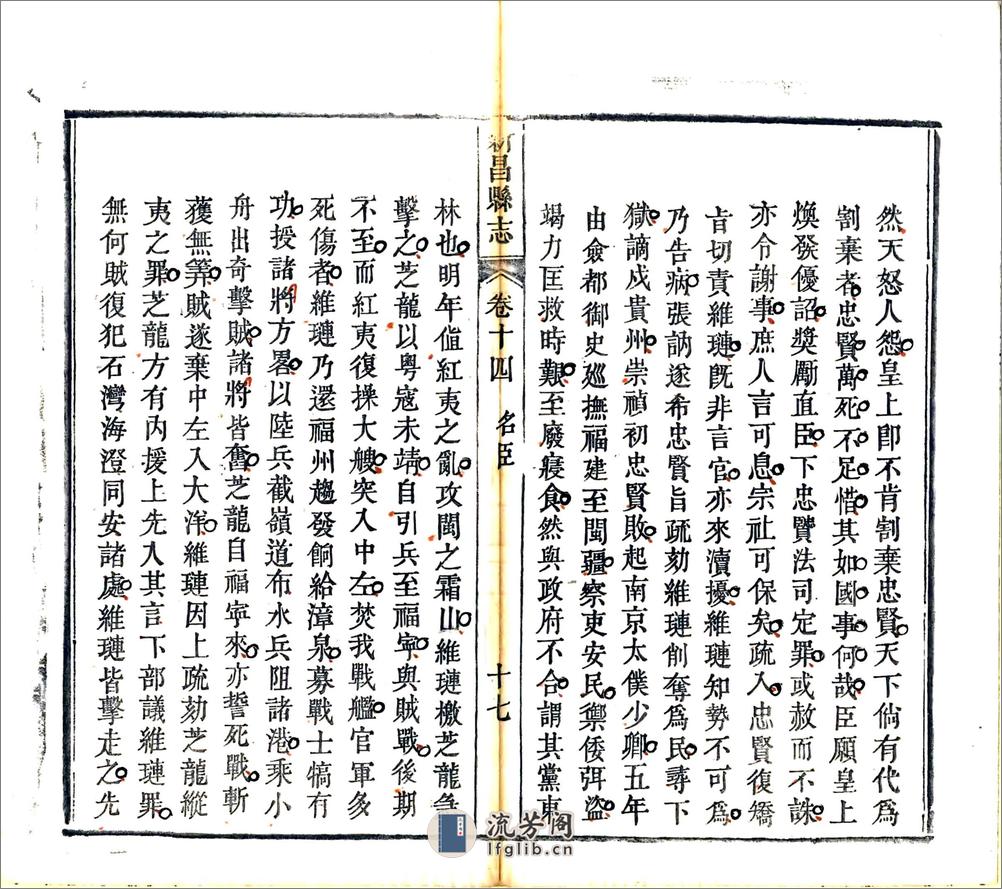 然天怒人怨皇上卽不肯割棄忠賢天下倘有代爲
割棄者忠賢萬死不足惜其如國事何哉臣願皇上
煥發優詔奬勵直臣下忠賢法司定罪或赦而不誅
亦令謝事庶人言可息宗社可保矣疏入忠賢復矯
旨切責維璉旣非言官亦來瀆擾維璉知勢不可爲
乃告病張訥遂希忠賢旨疏劾維璉削奪爲民尋下
獄謫戍貴州崇禎初忠賢敗起南京太僕少卿五年
由僉都御史廵撫福建至閩疆察吏安民禦倭弭盜
竭力匡救時艱至廢寢食然與政府不合謂其黨東
新昌縣志
卷十四
名臣
十七
林也明年值紅夷之亂攻閩之霜山維璉檄芝龍急
擊之芝龍以粵寇未靖自引兵至福寧與賊戰後期
不至而紅夷復操大艘突入中左焚我戰艦官軍多
死傷者維璉乃還福州趨發餉給漳泉募戰士犒有
功授諸將方畧以陸兵截嶺道布水兵阻諸港乘小
舟出奇擊賊諸將皆奮芝龍自福寧來亦誓死戰斬
獲無筭賊遂棄中左入大洋維璉因上疏劾芝龍縱
夷之罪芝龍方有内援上先入其言下部議維璉罪
無何賊復犯石灣海澄同安諸處維璉皆擊走之先
流芳阁
lfglib.cn